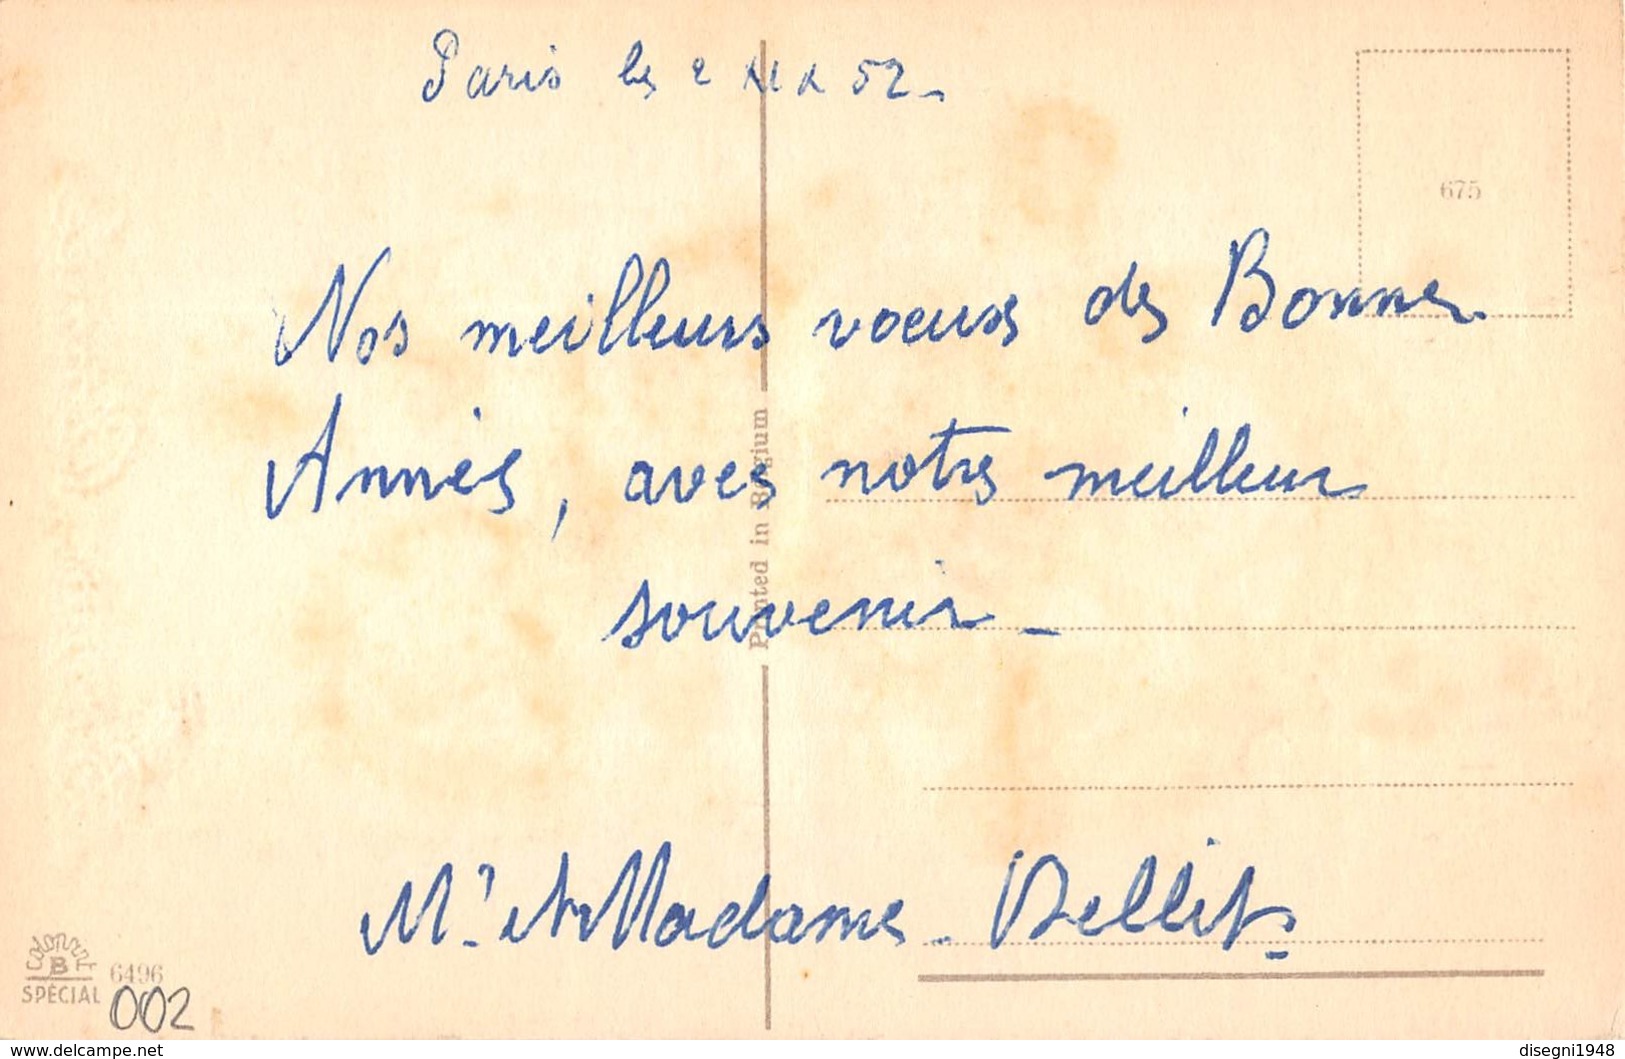 Paris le 2 XII 52_
675
Nos meilleurs voeux de Bonne
Année, avec notre meilleur
souvenir_
Printed in Belgium
Mr et Madame
colorprint
B
SPÉCIAL
6496
002
www.delcampe.net
disegni1948